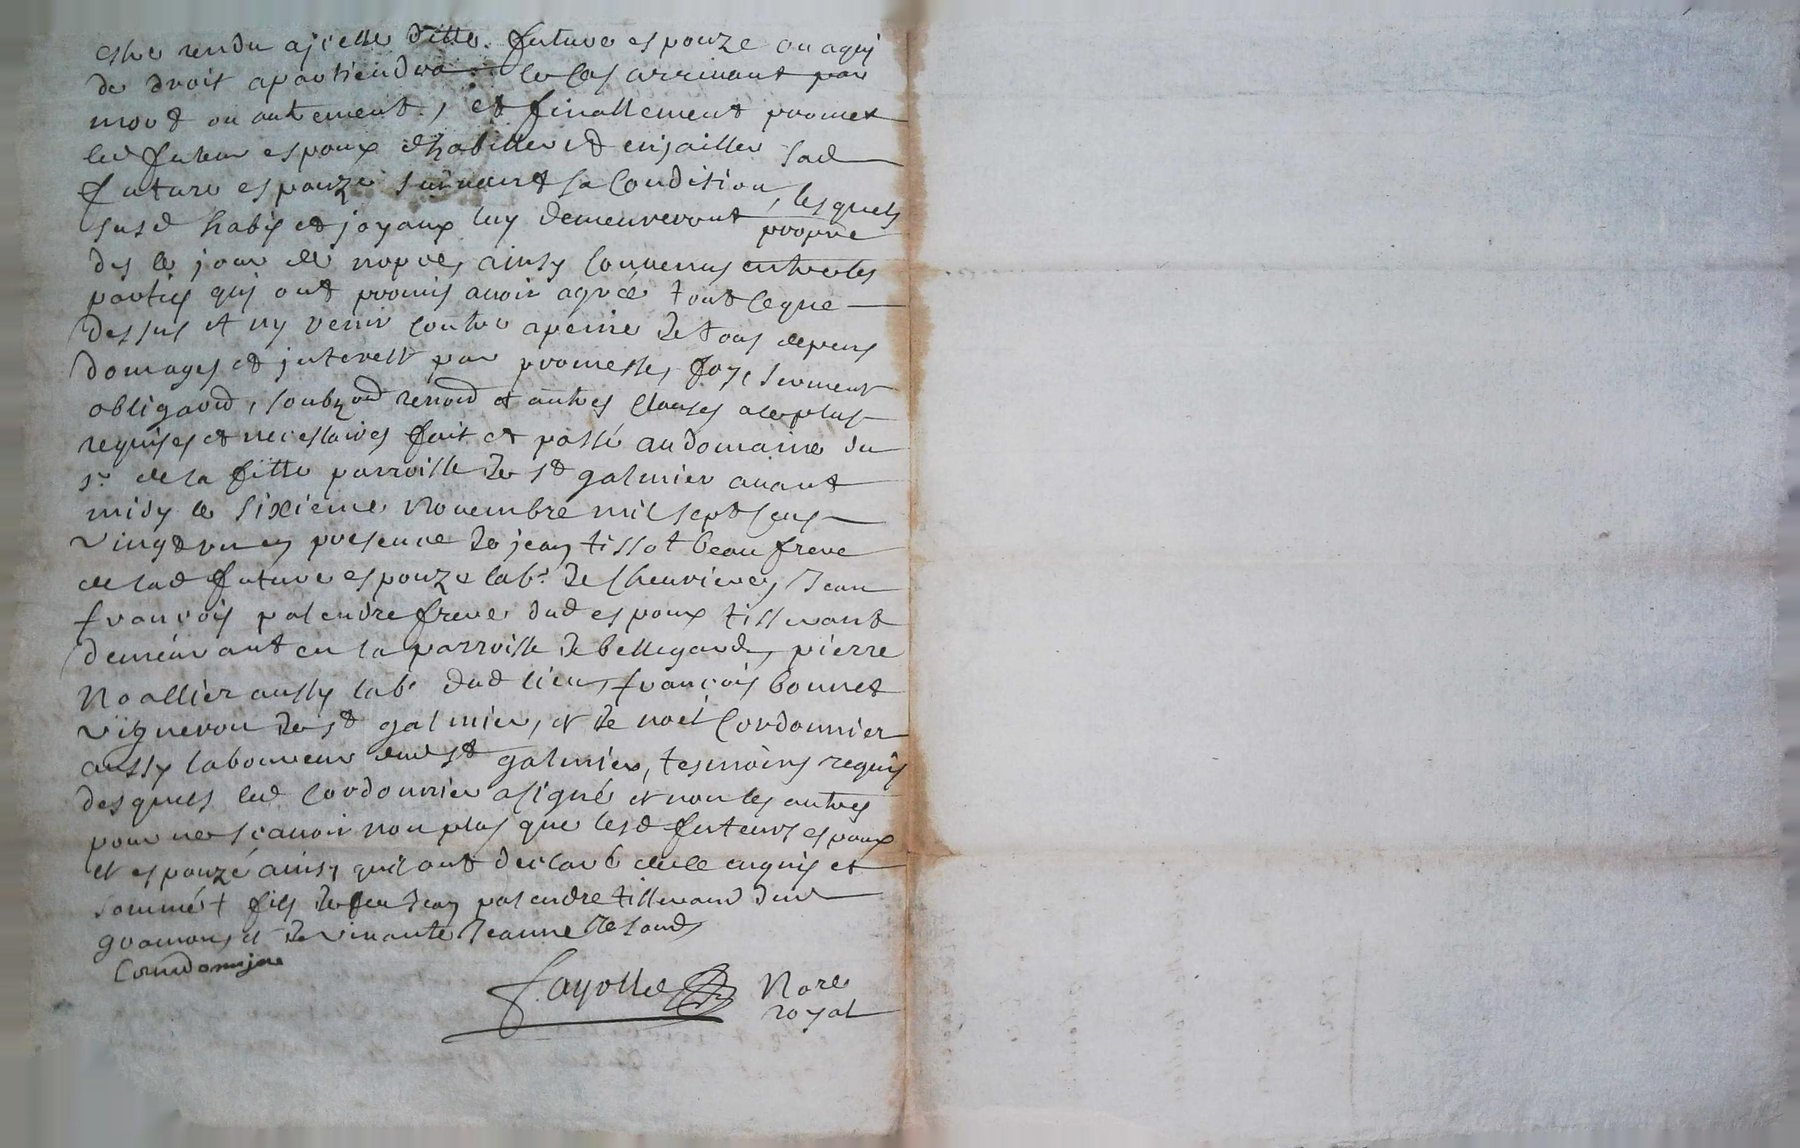 estre rendu a jcelle ditte future espouze ou a quj
de droit apartiendra le cas arrivant par
mort ou autrement, et finallement promet
led futeur espoux dhabiller et enjailler sad
future espouze suivant sa condition, lesquels
susd habis et joyaux luy demeureront propre
des le jour de nopces, ainsy convenus entre les
partiës quj ont promis avoir agreé tout ceque
dessus et ny venir contre a peine de tous depens
domages et interest par promesse, foy, serment
obligaõn, soubzõn renõn et autres clauses
requises et necessaires fait et passé au domaine du
sr. de la fitte parroisse de st galmier avant
midy le sixieme novembre mil sept cens
vingt un en presence de jean tissot beau frere
de lad future espouze labr. de Chevrieres, Jean
françois palendre frere dud espoux tisserant
demeurant en la parroisse de bellegarde, pierre
Noallier aussy labr dud lieu, françois bonnet
vigneron de st galmier, et de noel Cordonnier
aussy laboureur dud st galmier, tesmoins requis
desquels led Cordonnier a signé et non les autres
pour ne sçavoir non plus que lesd futeurs espoux
et espouzé ainsy quil ont declaré de ce enquis et
sommés + fils de feu Jean palendre tisserand dud
gramons et de vivante Jeanne
f. ayolle Nore
royal